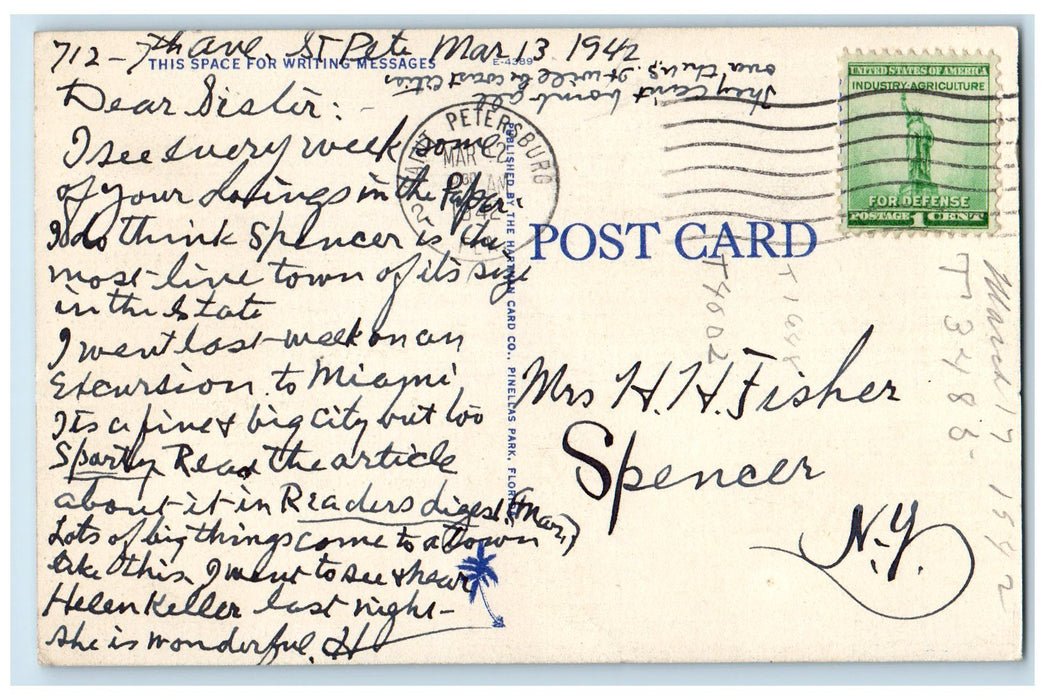 712-7th ave. St Pete Mar 13 1942
THIS SPACE FOR WRITING MESSAGES
E-4389
They can't bomb all
over the U.S. It will be coast cities
Dear Sister:-
I see every week some
of your doings in the Paper.
I do think Spencer is the
most live town of its size
in the State
I went last-week on an
Excursion to Miami,
Its a fine & big city but too
Sporty. Read the article
about-it-in Readers digest. (Mar.)
Lots of big things come to a town
like this. I went to see & hear
Helen Keller last night-
She is wonderful. H
SAINT PETERSBURG
MAR
AM
PUBLISHED BY THE HARTMAN CARD CO., PINELLAS PARK, FLORIDA
POST CARD
UNITED STATES OF AMERICA
INDUSTRY AGRICULTURE
FOR DEFENSE
POSTAGE 1 CENT
Mrs H. H. Fisher
Spencer
N.Y.
T4002
T1648
T3485
March 17 1942